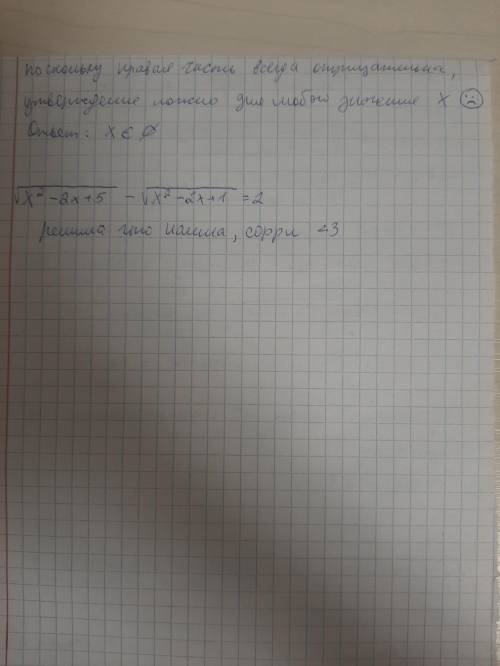 поскольку правая часть всегда отрицательна,
утверждение ложно для любого значения x ☹
Ответ: x ∈ ∅
√x² - 2x + 5 - √x² - 2x + 1 = 2
решила что , сорри <3